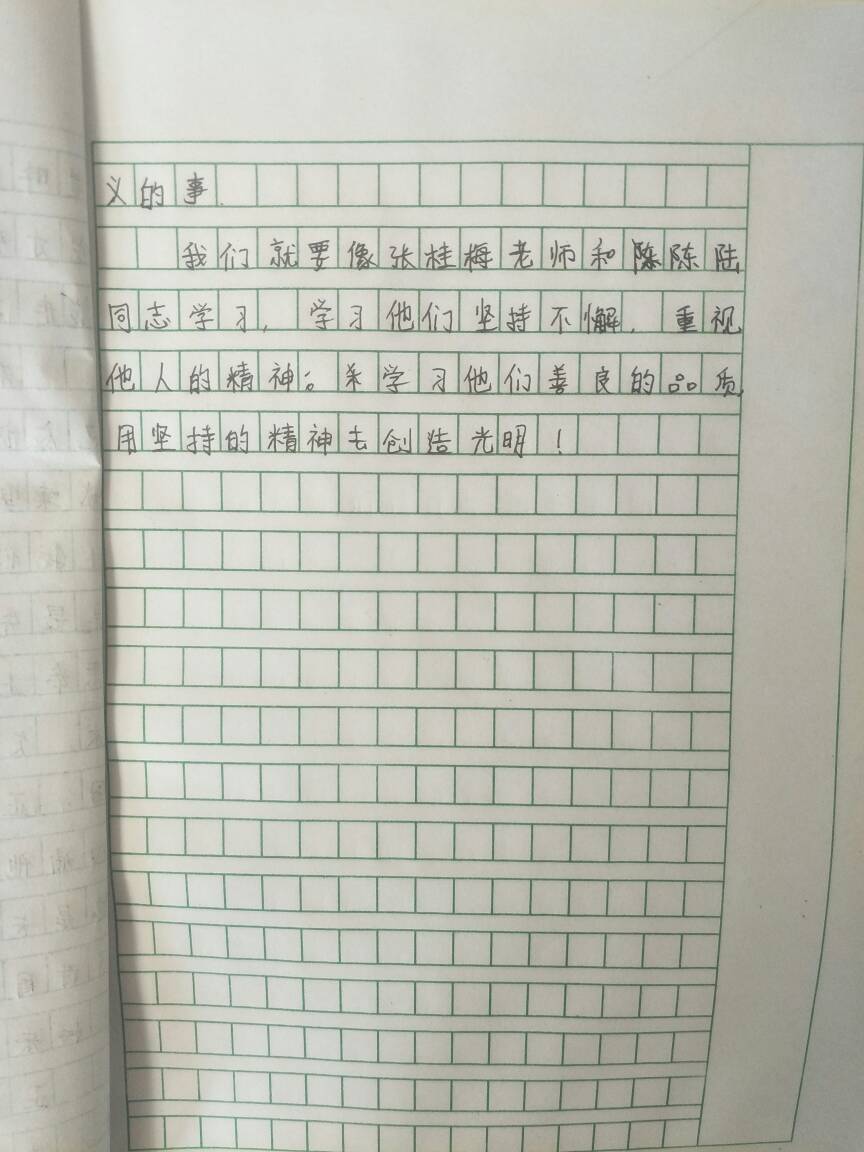 义的事.
我们就要像张桂梅老师和陈陆
同志学习，学习他们坚持不懈，重视
他人的精神。学习他们善良的品质
用坚持的精神去创造光明！